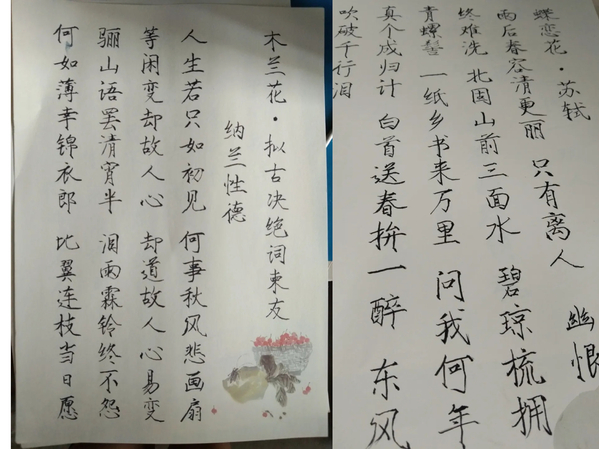 木兰花·拟古决绝词柬友
纳兰性德
人生若只如初见 何事秋风悲画扇
等闲变却故人心 却道故人心易变
骊山语罢清宵半 泪雨霖铃终不怨
何如薄幸锦衣郎 比翼连枝当日愿
蝶恋花·苏轼
雨后春容清更丽 只有离人 幽恨
终难洗 北固山前三面水 碧琼梳拥
青螺髻 一纸乡书来万里 问我何年
真个成归计 白首送春拚一醉 东风
吹破千行泪